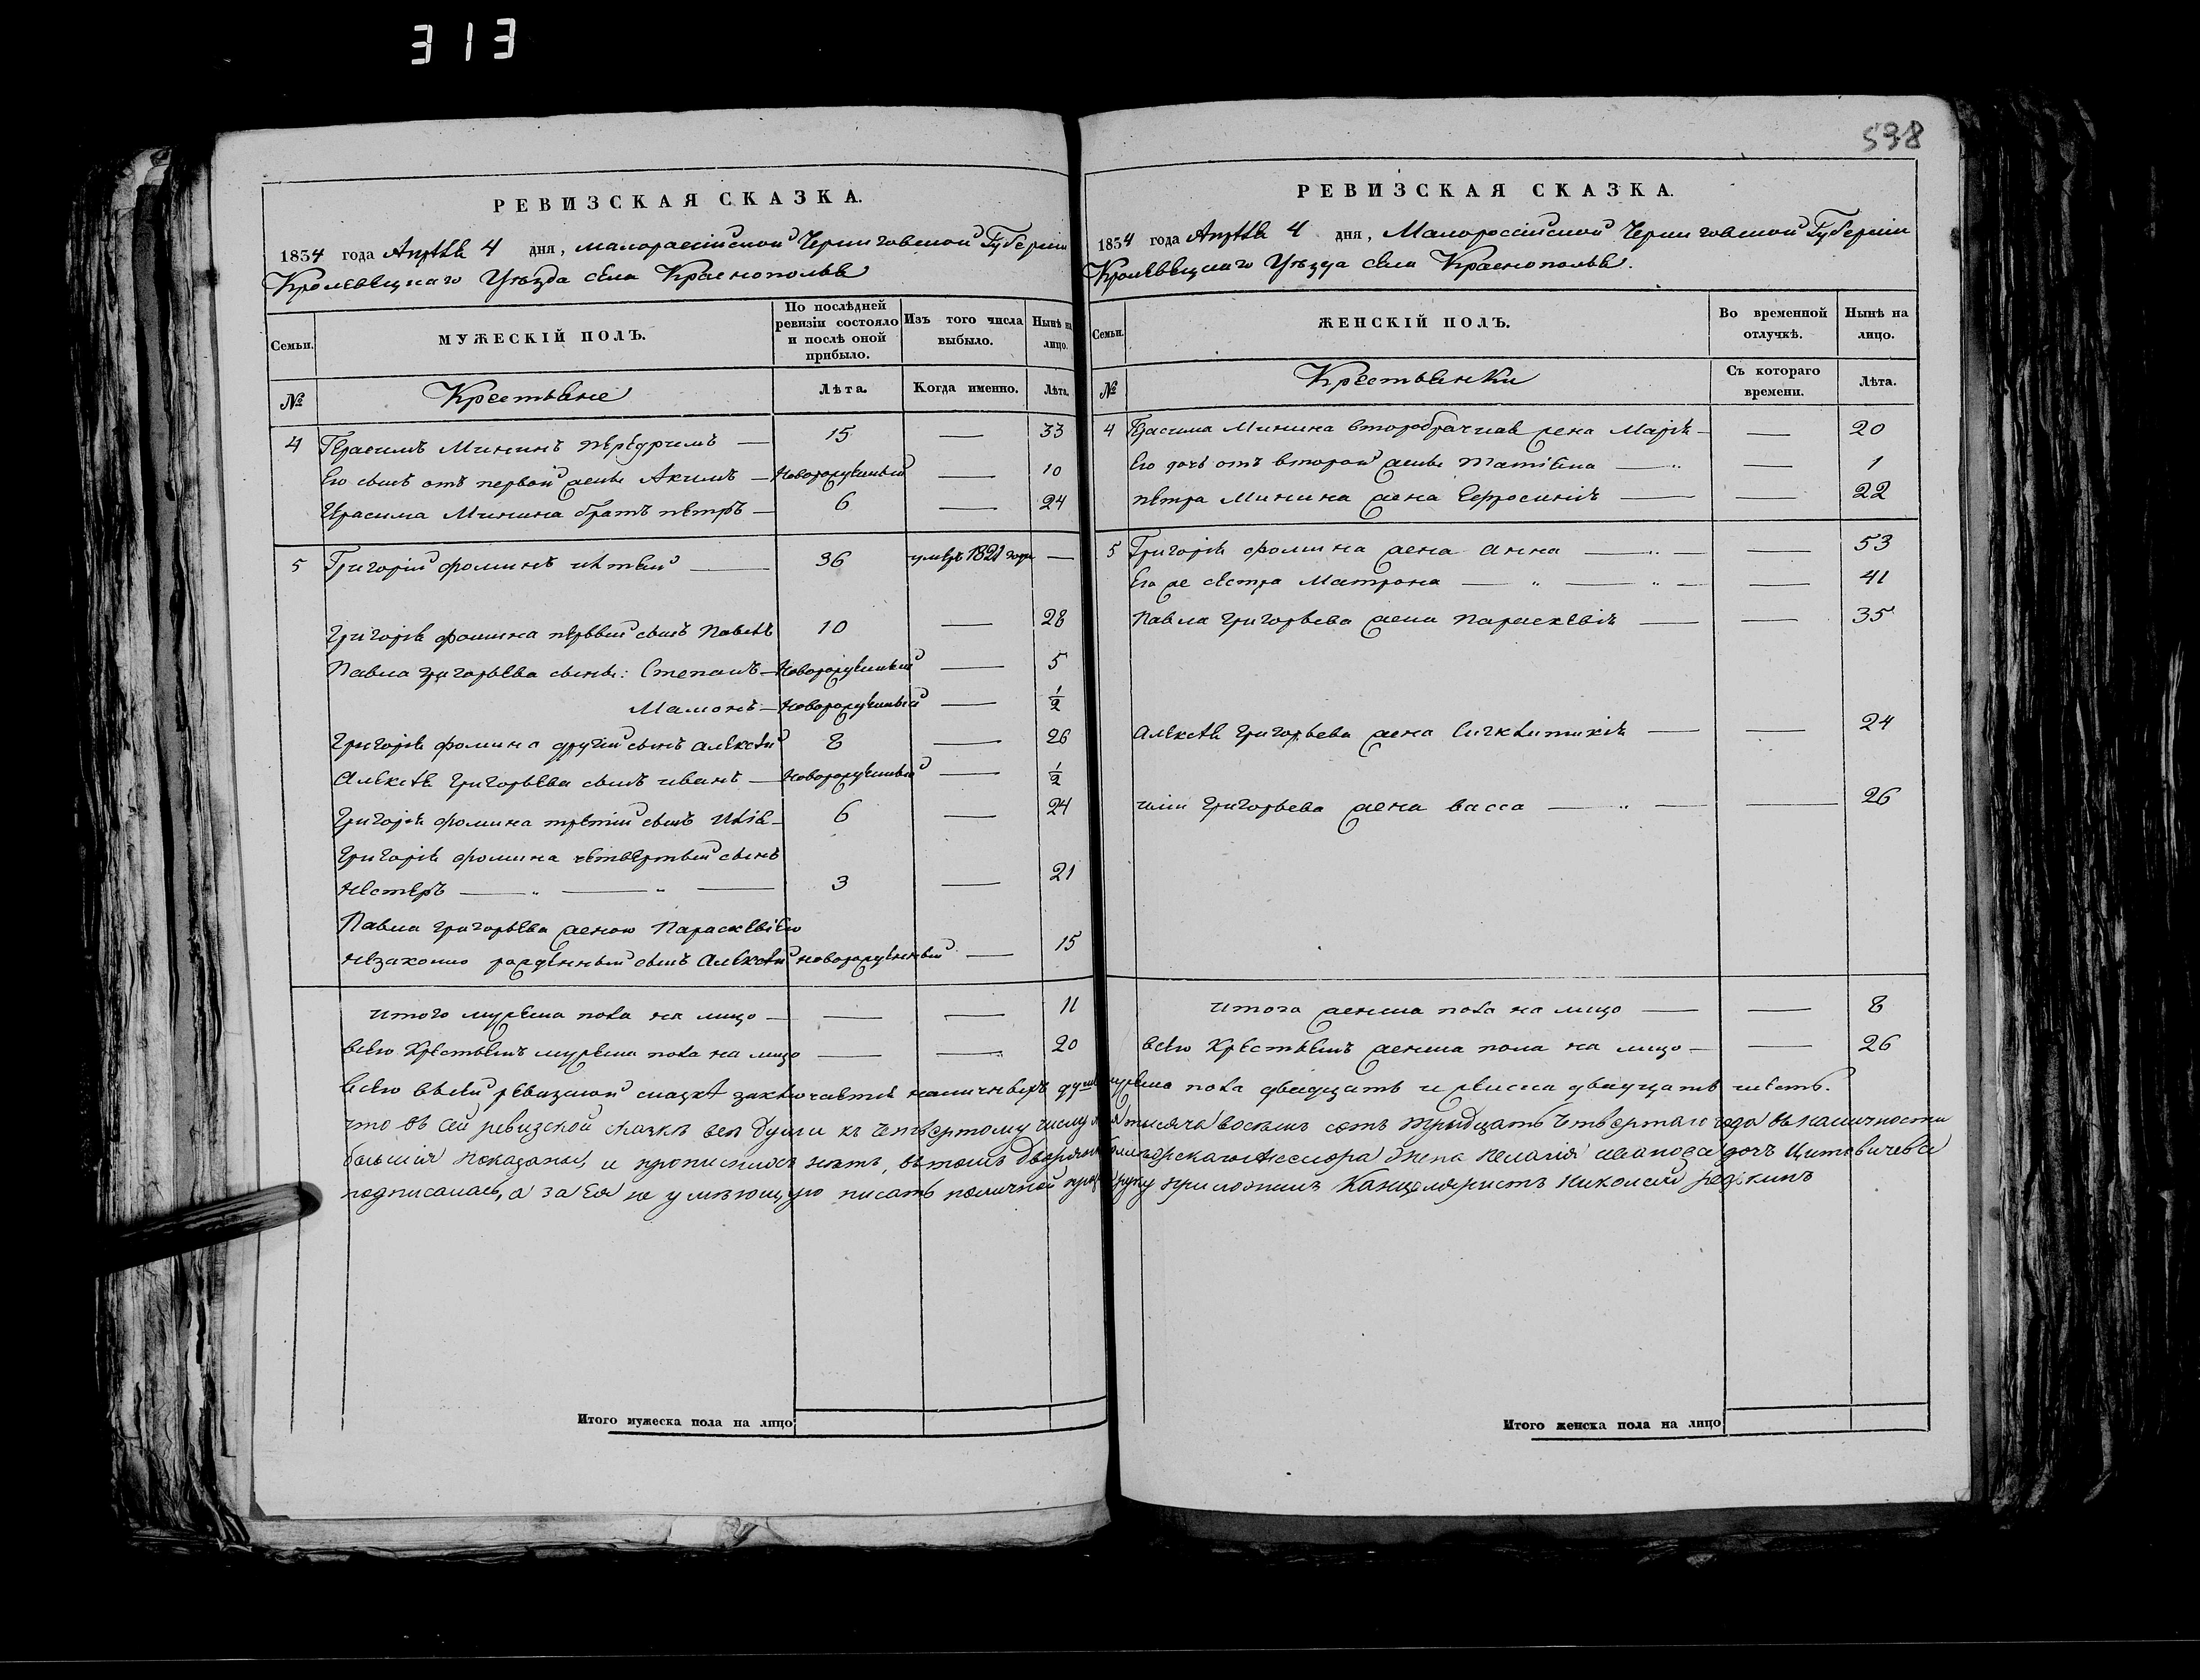 313
538
РЕВИЗСКАЯ СКАЗКА.
1834 года Апрѣля 4 дня, Малоросiйской Черниговской Губернiи
Кролевецкаго Уѣзда села Краснополья
Семьи.
МУЖЕСКIЙ ПОЛЪ.
По послѣдней ревизiи состояло и послѣ оной прибыло.
Изъ того числа выбыло.
Нынѣ на лицо.
№
Крестьяне
Лѣта.
Когда именно.
Лѣта.
4 Герасимъ Мининъ — 15 — 33
Его сынъ отъ первой жены Акимъ — Новорожденный — 10
Герасима Минина братъ петръ — 6 — 24
5 Григорiй фоминъ — 36 умеръ 1821 года —
Григорiя фомина первый сынъ Павелъ 10 — 28
Павла григорьева сыны: Степанъ — Новорожденный — 5
Мамонъ — Новорожденный — ½
Григорiя фомина другiй сынъ алексѣй 8 — 26
Алексѣя Григорьева сынъ иванъ — Новорожденный — ½
Григорiя фомина третiй сынъ Илiя — 6 — 24
Григорiя фомина четвертый сынъ
нестеръ — " — " — 3 — 21
Павла григорьева женою Параскевiею
незаконно рожденный сынъ Алексѣй новорожденный — 15
итого мужеска пола на лицо — — — 11
всего Крестьянъ мужеска пола на лицо — — 20
РЕВИЗСКАЯ СКАЗКА.
1834 года Апрѣля 4 дня, Малоросciйской Черниговской Губернiи
Кролевецкаго Уѣзда села Краснополья.
Семьи.
ЖЕНСКIЙ ПОЛЪ.
Во временной отлучкѣ.
Нынѣ на лицо.
№
Крестьянки
Съ котораго времени.
Лѣта.
4 Герасима Минина второбрачная жена Марiя — — 20
Его дочь отъ второй жены Татiяна — " — 1
петра Минина жена Ефросинiя — — 22
5 Григорiя фомина жена анна — " — — 53
Его же сестра Матрона — " — " — — 41
Павла григорьева жена Параскевiя — — 35
алексѣя григорьева жена — — 24
илiи григорьева жена васса — " — — 26
итого женска пола на лицо — — 8
всего Крестьянъ женска пола на лицо — — 26
Всего въ сей ревизской сказкѣ заключается наличныхъ душъ мужеска пола двадцать и женска двадцать шесть.
что въ сей ревизской сказкѣ всѣ души къ четвертому числу тысяча восемь сотъ тридцать четвертаго года въ наличности
бывшiя показаны, и прописныхъ нѣтъ, въ томъ Ассесора жена пелагiя дочь Цитовичева
подписалась, а за Ея не умѣющую писать по личной прозбѣ руку приложилъ Канцеляристъ Николай
Итого мужеска пола на лицо
Итого женска пола на лицо